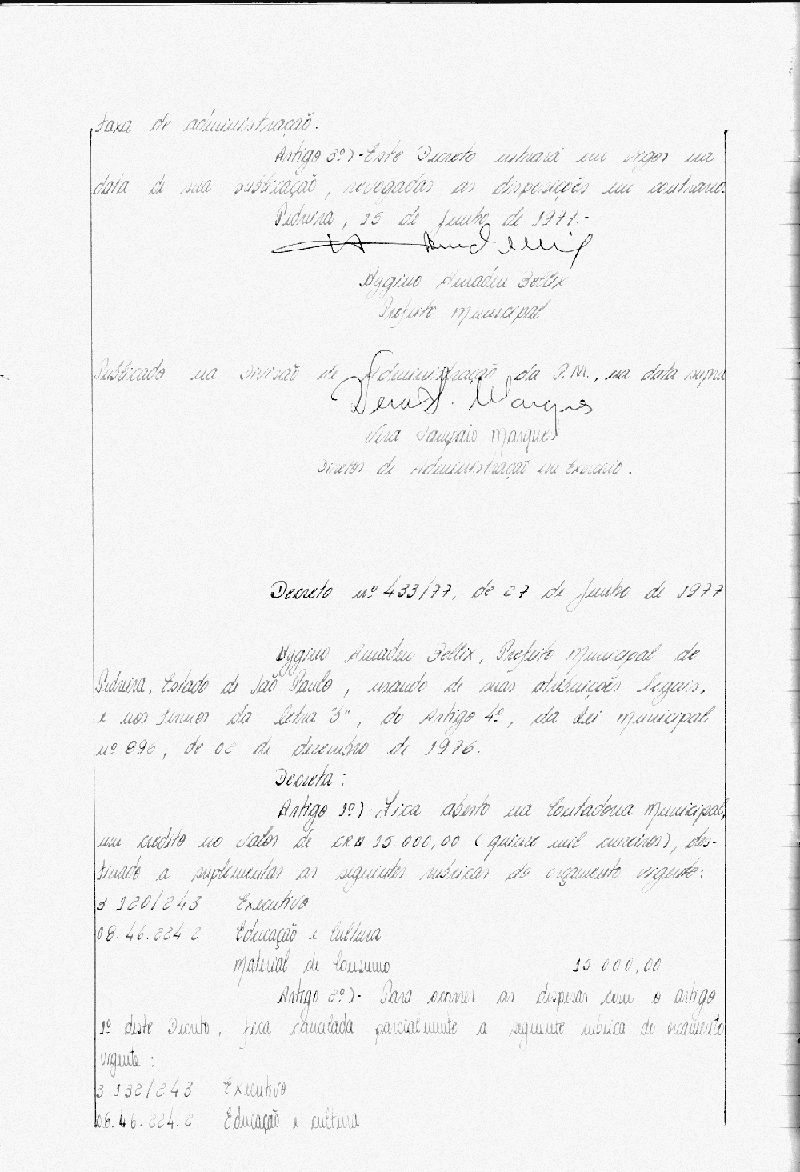 Taxa de administração.
Artigo 3º)- Este Decreto entrará em vigor na
data de sua publicação, revogadas as disposições em contrário.
Pedreira, 15 de Junho de 1977.-
Hygino Amadeu Bellix
Prefeito Municipal
Publicado na Divisão de Administração da P.M., na data supra
Vera S. Marques
Vera Sampaio Marques
Diretor de Administração em Exercício.
Decreto nº 433/77, de 27 de Junho de 1977
Hygino Amadeu Bellix, Prefeito Municipal de
Pedreira, Estado de São Paulo, usando de suas atribuições legais,
e nos termos da letra 3", do Artigo 4º, da Lei Municipal
nº 896, de 02 de dezembro de 1976.
Decreta:
Artigo 1º) Fica aberto na Contadoria Municipal,
um crédito no valor de CR$ 15.000,00 (quinze mil cruzeiros), des-
tinado a suplementar as seguintes rubricas do orçamento vigente:
3 120/243 Executivo
08.46.224 2 Educação e Cultura
Material de Consumo 15.000,00
Artigo 2º)- Para ocorrer as despesas com o artigo
1º deste Decreto, fica cancelada parcialmente a seguinte rubrica do orçamento
vigente:
3 132/243 Executivo
08.46.224.2 Educação e cultura